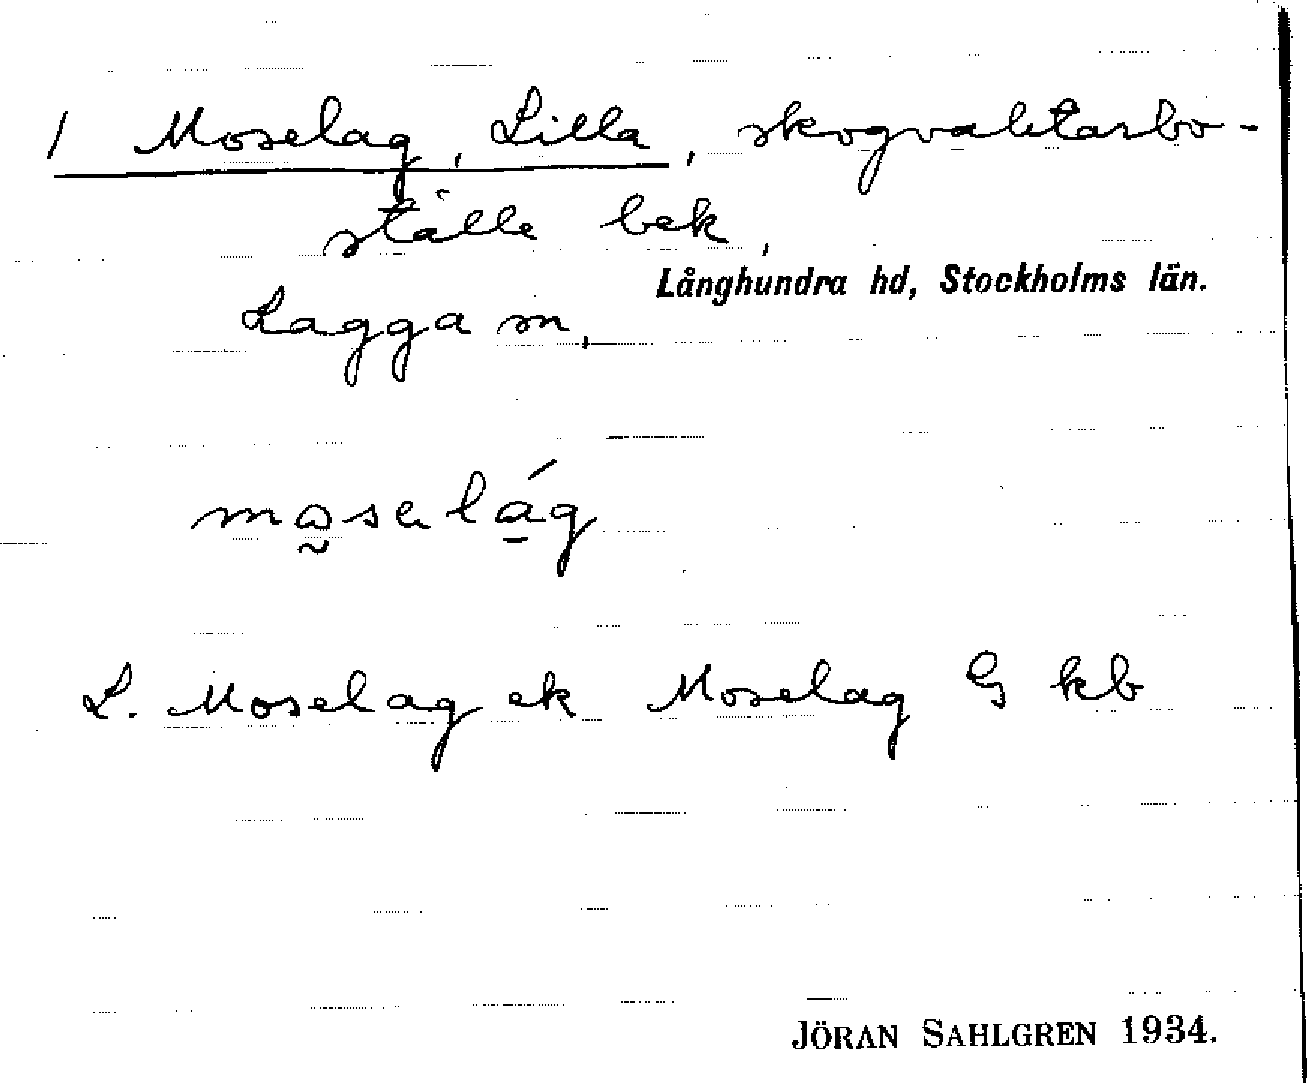 1 Moselag, Lilla, skogvaktarbo-
ställe bek,
Långhundra hd, Stockholms län.
Lagga sn,
mɷ̰selág
L. Moselag ek Moselag G kb
JÖRAN SAHLGREN 1934.